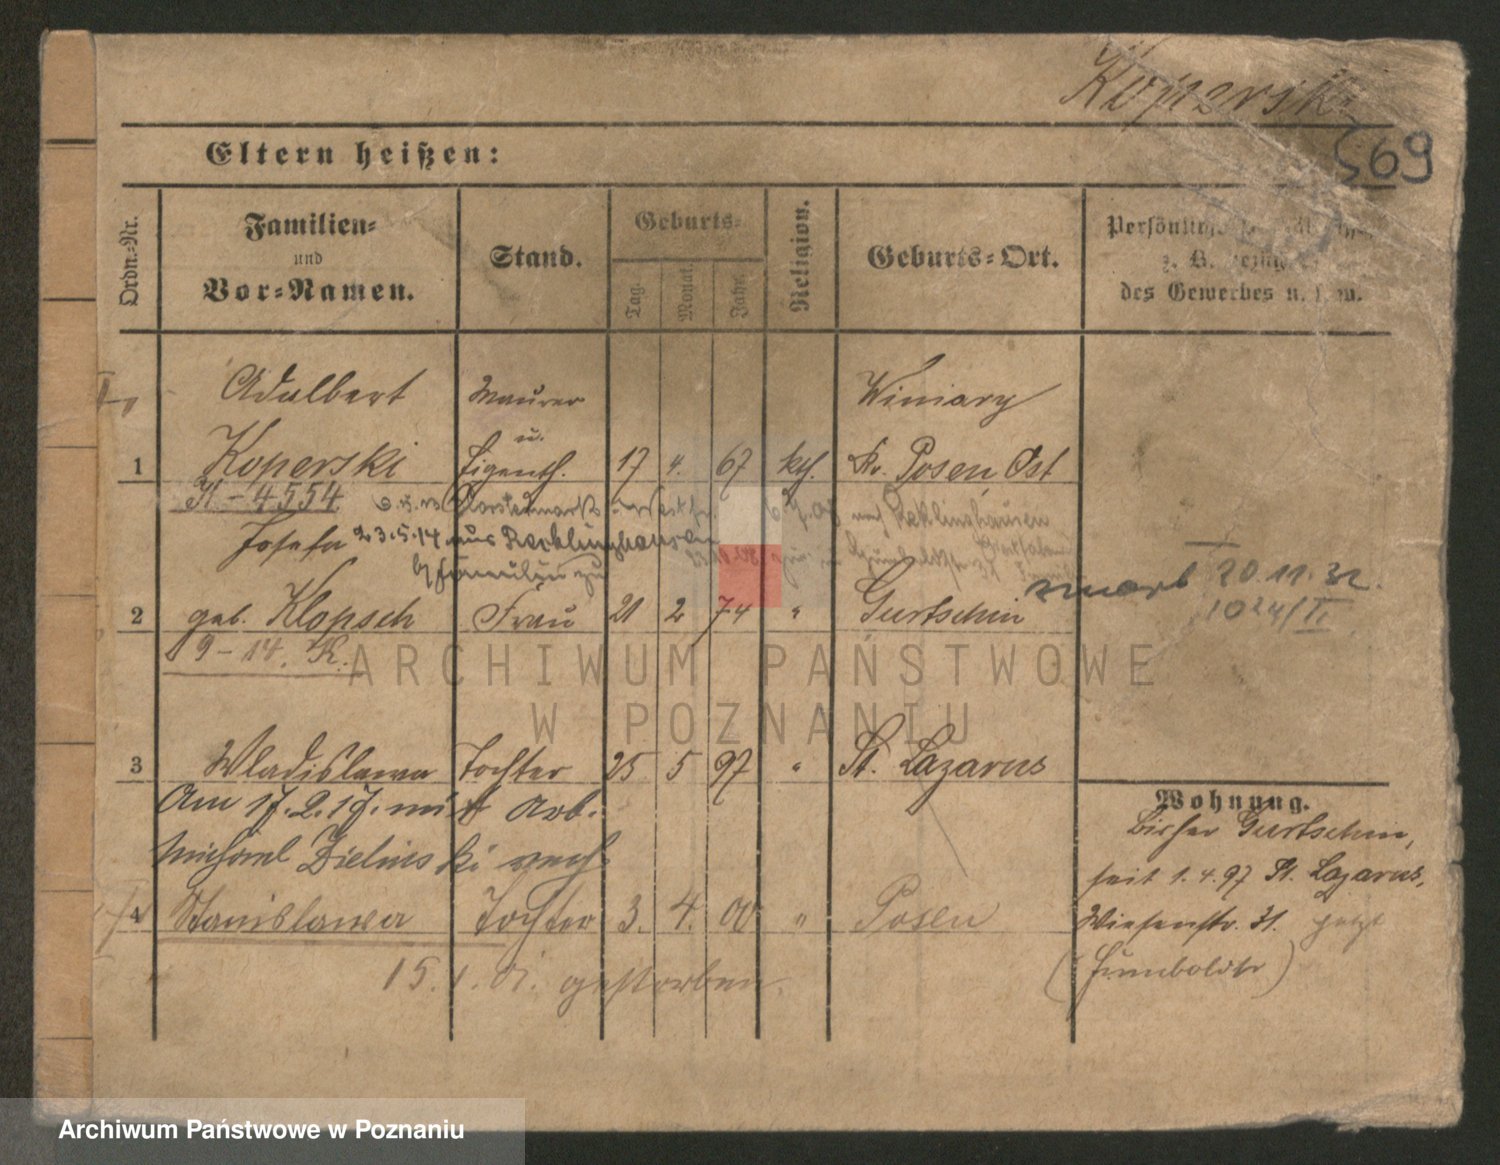 Koperski
569
Eltern heißen:
Ordn.-Nr.
Familien-
und
Vor-Namen.
Stand.
Geburts-
Tag.
Monat.
Jahr.
Religion.
Geburts-Ort.
des Gewerbes u. s. w.
Adalbert
Maurer
Winiary
u.
1 Koperski Eigenth. 17 4. 67 kth. Kr. Posen Ost
K-4554
Josefa 23.5.14 aus Recklinghausen
20.11.32.
1024/II.
2 geb. Klopsch Frau 21 2 74 " Gurtschin
19-14. K.
ARCHIWUM PAŃSTWOWE
W POZNANIU
3 Wladislawa Tochter 25 5 97 " St. Lazarus
Am 17.2.17. mit Arb.
Michael Zielinski verh.
4 Stanislawa Tochter 3. 4. 00 " Posen
15.1.01. gestorben.
Wohnung.
Bisher Gurtschin,
seit 1.4.97 St. Lazarus,
Wiesenstr. 31. jetzt
(Humboldtstr)
Archiwum Państwowe w Poznaniu